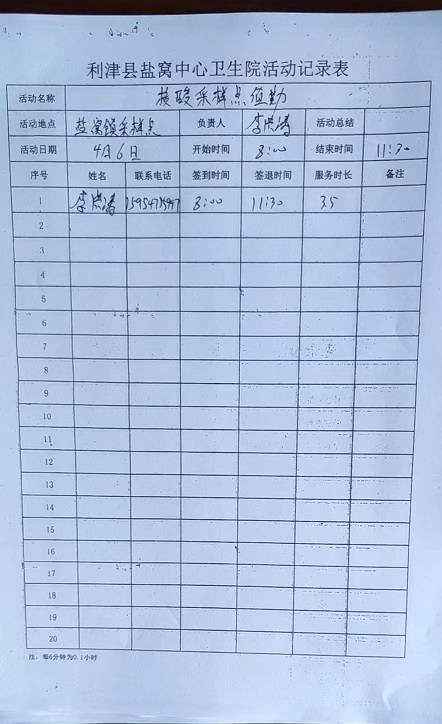 利津县盐窝中心卫生院活动记录表
活动名称 核酸采样点值勤
活动地点 盐窝镇采样点 负责人 活动总结
活动日期 4月6日 开始时间 8:00 结束时间 11:30
序号 姓名 联系电话 签到时间 签退时间 服务时长 备注
1 8:00 11:30 3.5
2
3
4
5
6
7
8
9
10
11
12
13
14
15
16
17
18
19
20
注：每6分钟为0.1小时